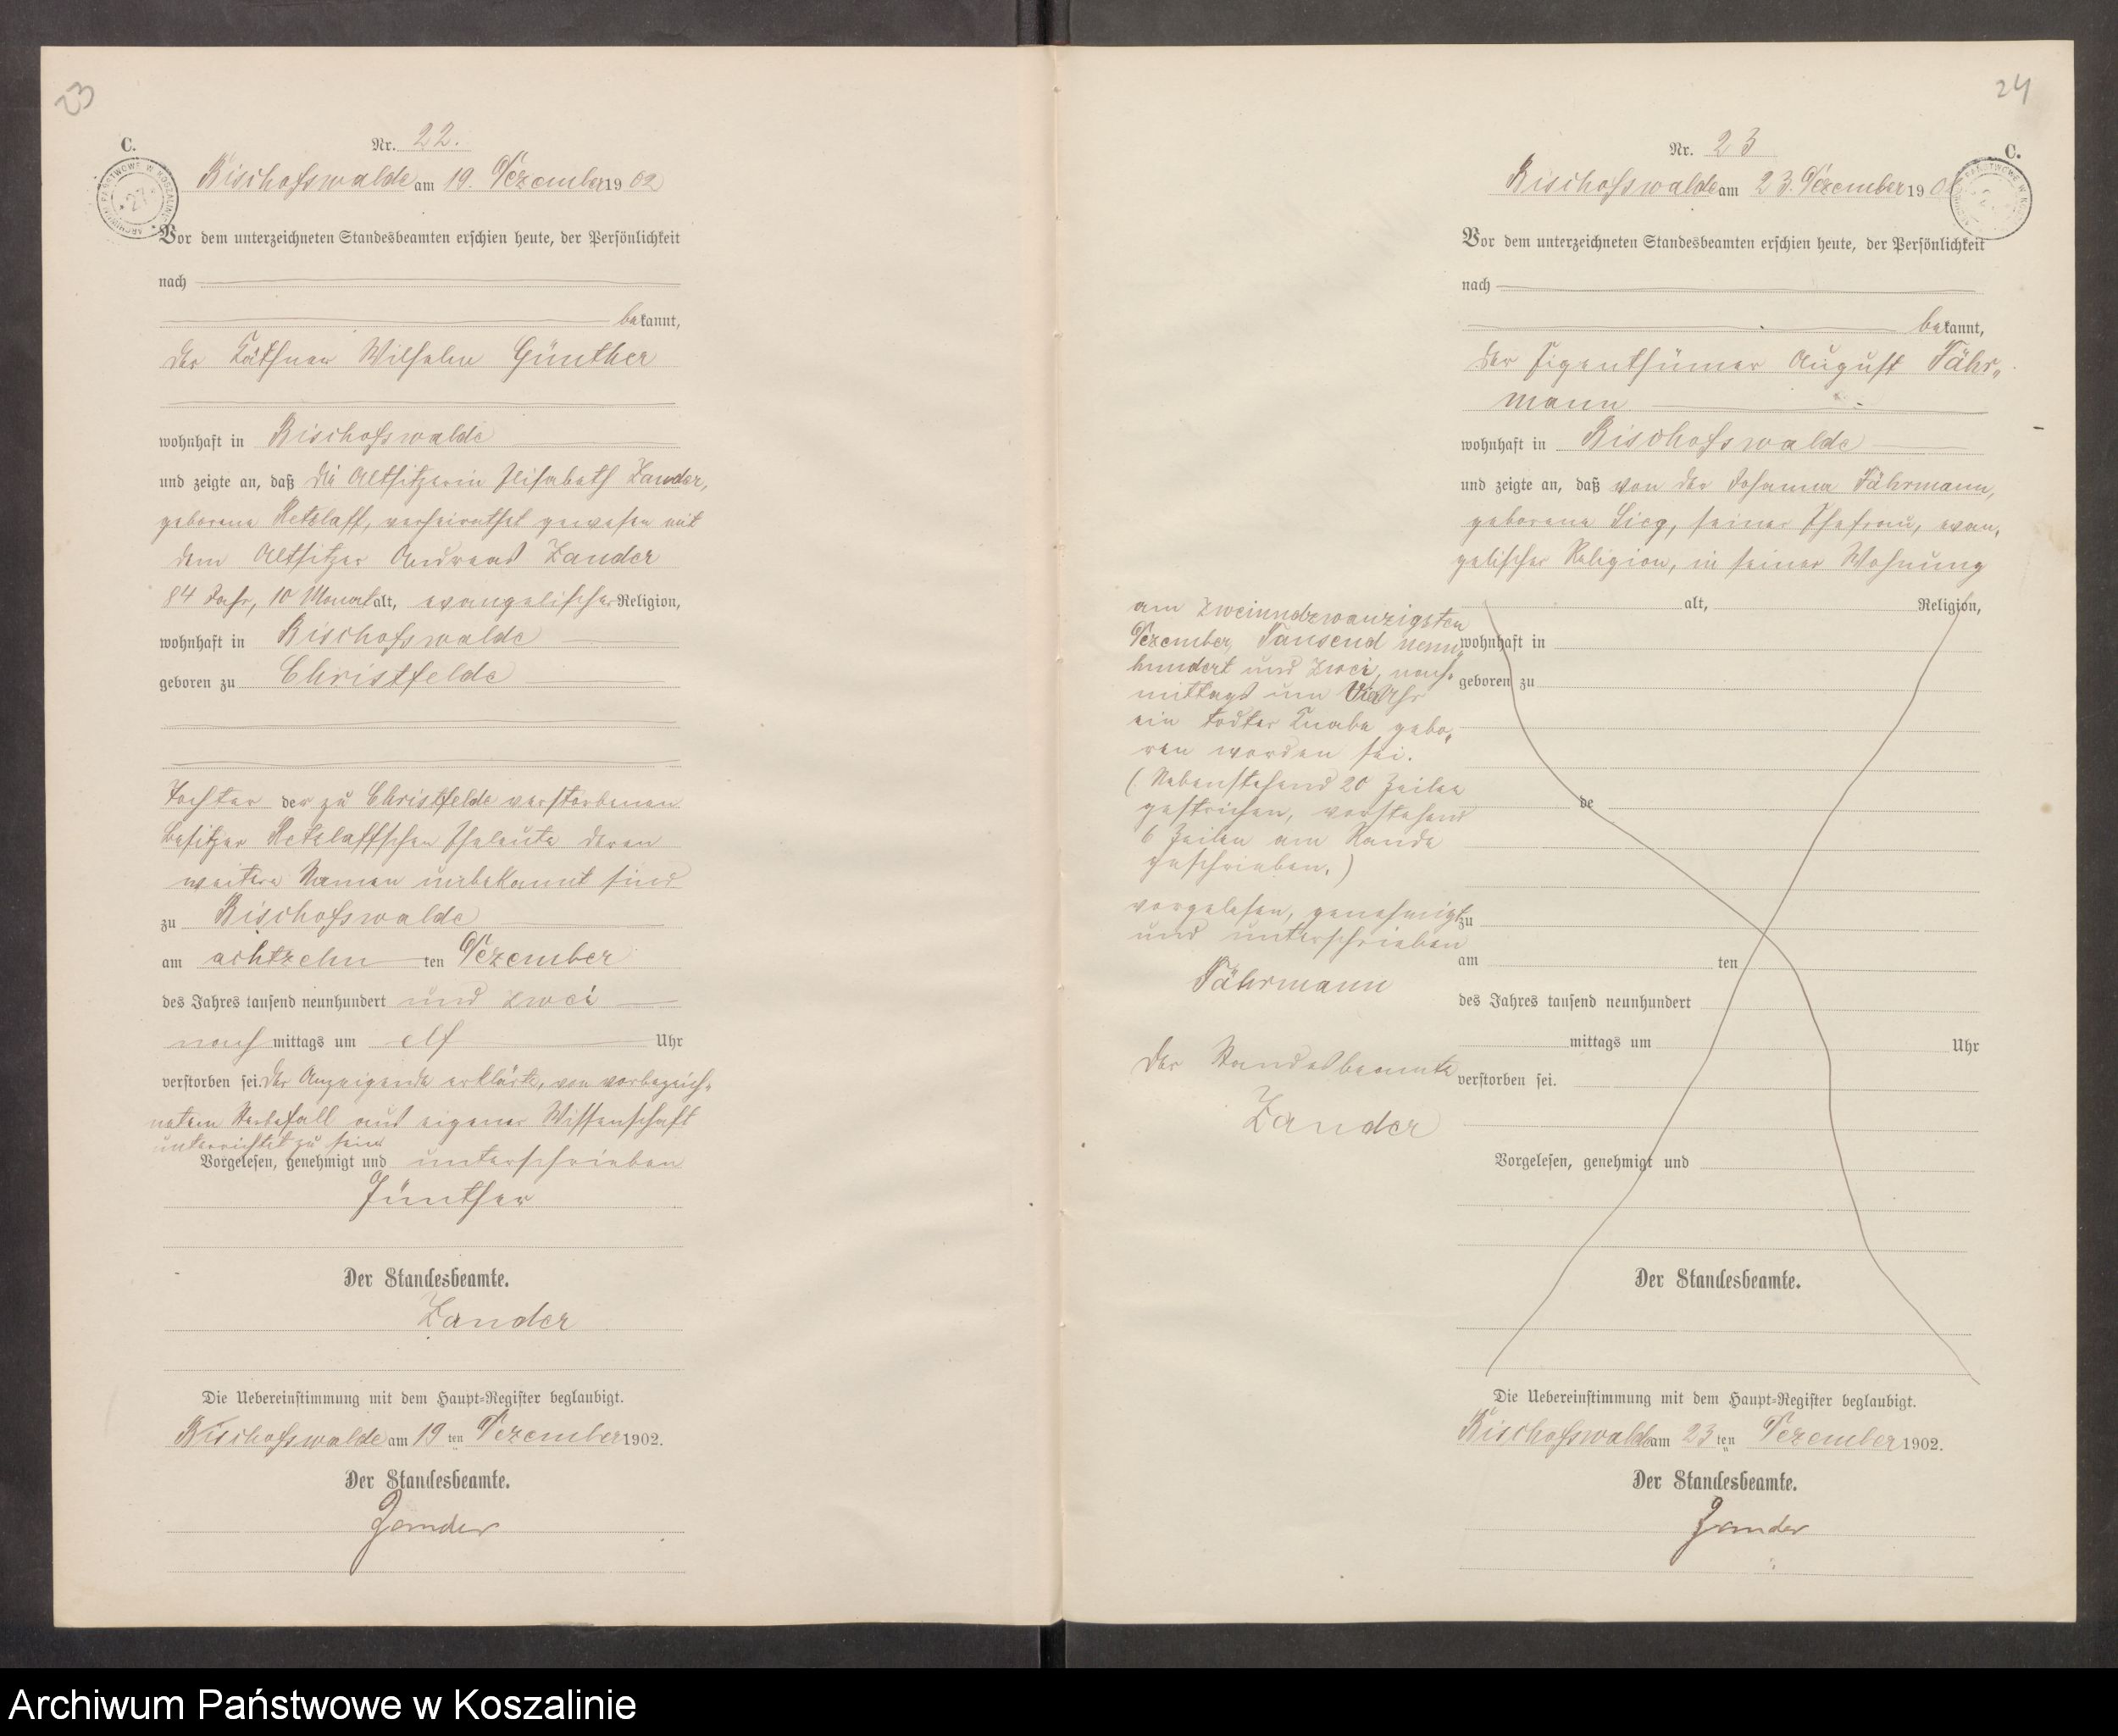 23
C.
Nr. 22.
Bischofswalde am 19. Dezember 1902
ARCHIWUM PAŃSTWOWE W KOSZALINIE
Vor dem unterzeichneten Standesbeamten erschien heute, der Persönlichkeit
nach
bekannt,
der Käthner Wilhelm Günther
wohnhaft in Bischofswalde
und zeigte an, daß die Altsitzerin Elisabeth Zander,
geborene Retzlaff, verheirathet gewesen mit
dem Altsitzer Andreas Zander
84 Jahr, 10 Monat alt, evangelischer Religion,
wohnhaft in Bischofswalde
geboren zu Christfelde
Tochter der zu Christfelde verstorbenen
Besitzer Retzlaffschen Eheleute deren
weitere Namen unbekannt sind
zu Bischofswalde
am achtzehn ten Dezember
des Jahres tausend neunhundert und zwei
nach mittags um elf Uhr
verstorben sei. Der Anzeigende erklärte, von vorbezeich-
netem Sterbefall aus eigener Wissenschaft
unterrichtet zu sein
Vorgelesen, genehmigt und unterschrieben
Günther
Der Standesbeamte.
Zander
Die Uebereinstimmung mit dem Haupt-Register beglaubigt.
Bischofswalde am 19 ten Dezember 1902.
Der Standesbeamte.
Zander
24
Nr. 23
C.
Bischofswalde am 23. Dezember 190
Vor dem unterzeichneten Standesbeamten erschien heute, der Persönlichkeit
nach
bekannt,
der Eigenthümer August Fähr„
mann
wohnhaft in Bischofswalde
und zeigte an, daß von der Johanna Fährmann,
geborene Sieg, seiner Ehefrau, evan„
gelischer Religion, in seiner Wohnung
am zweiundzwanzigsten
Dezember, Tausend neun„
hundert und zwei, nach„
mittags um Uhr
ein todter Knabe gebo„
ren worden sei.
(Nebenstehend 20 Zeilen
gestrichen, vorstehend
6 Zeilen am Rande
geschrieben.)
vorgelesen, genehmigt
und unterschrieben
Fährmann
Der Standesbeamte
Zander
alt, Religion,
wohnhaft in
geboren zu
de
zu
am ten
des Jahres tausend neunhundert
mittags um Uhr
verstorben sei.
Vorgelesen, genehmigt und
Der Standesbeamte.
Die Uebereinstimmung mit dem Haupt-Register beglaubigt.
Bischofswalde am 23 ten Dezember 1902.
Der Standesbeamte.
Zander
Archiwum Państwowe w Koszalinie